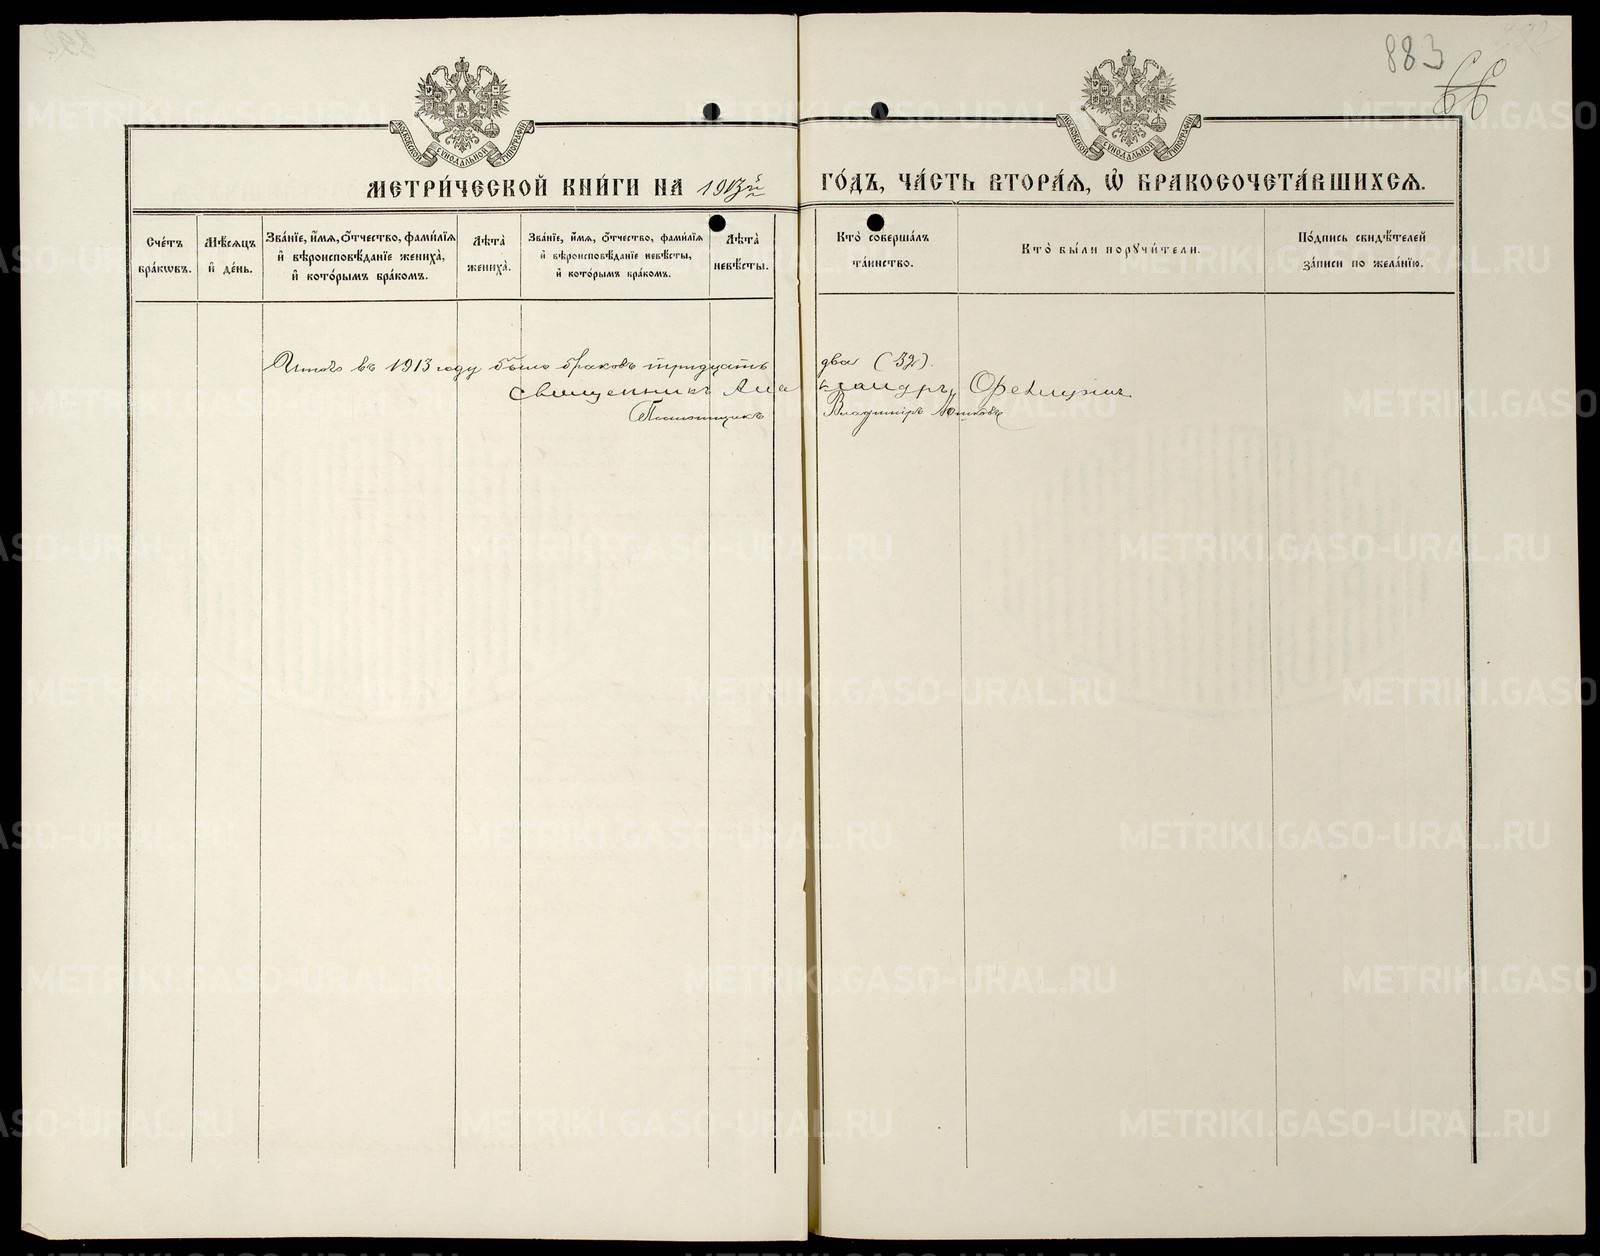 883
66
МОСКОВСКОЙ СѴНОДАЛЬНОЙ ТИПОГРАФІИ
МОСКОВСКОЙ СѴНОДАЛЬНОЙ ТИПОГРАФІИ
МЕТРИ́ЧЕСКОЙ КНИ́ГИ НА 1913й ГО́ДЪ, ЧА́СТЬ ВТОРА́Ѧ, Ѡ҆ БРАКОСОЧЕТА́ВШИХСѦ.
Сче́тъ бра́кѡвъ.
Мѣ́сѧцъ и҆ де́нь.
Зва́нїе, и҆́мѧ, ѻ҆́тчество, фами́лїѧ и҆ вѣроисповѣ́данїе жениха̀, и҆ кото́рымъ бра́комъ.
Лѣ́та жениха̀.
Зва́нїе, и҆́мѧ, ѻ҆́тчество, фами́лїѧ и҆ вѣроисповѣ́данїе невѣ́сты, и҆ кото́рымъ бра́комъ.
Лѣ́та невѣ́сты.
Кто̀ соверша́лъ та́инство.
Кто̀ бы́ли порꙋчи́тели.
По́дпись свидѣ́телей за́писи по жела́нїю.
Итого въ 1913 году было браковъ тридцать два (32).
Священникъ Александръ
Псаломщикъ Владиміръ
METRIKI.GASO-URAL.RU